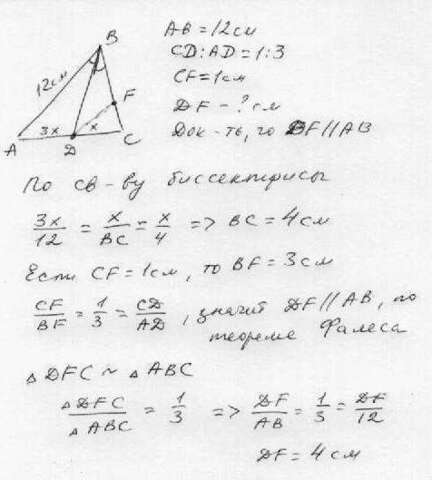 B
12см
F
3x
x
A
D
C
AB = 12см
CD:AD = 1:3
CF = 1см
DF - ? см
Док-ть, то DF // AB
По св-ву биссектрисы
3x/12 = x/BC = x/4 => BC = 4см
Если CF = 1см, то BF = 3см
CF/BF = 1/3 = CD/AD, значит DF // AB, по
теореме Фалеса
△DFC ~ △ABC
△DFC/△ABC = 1/3 => DF/AB = 1/3 = DF/12
DF = 4см